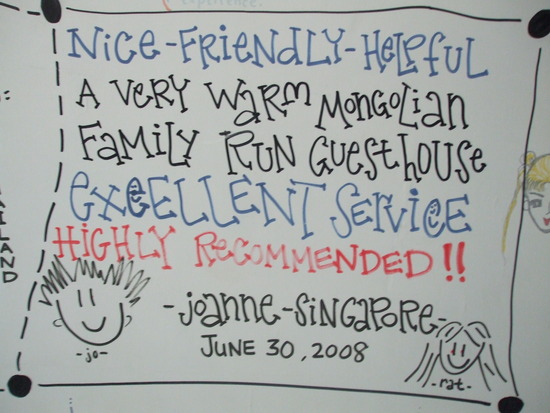 experience.
NiCE-FRiENDLY-HELPfUL
A VERY WaRM MONGOLiaN
FaMiLY RUN GUESTHOUSE
EXCELLENT SERViCE
HiGHLY RECOMMENDED !!
-JOANNE-SiNGAPORE-
JUNE 30, 2008
-jo-
-rat-